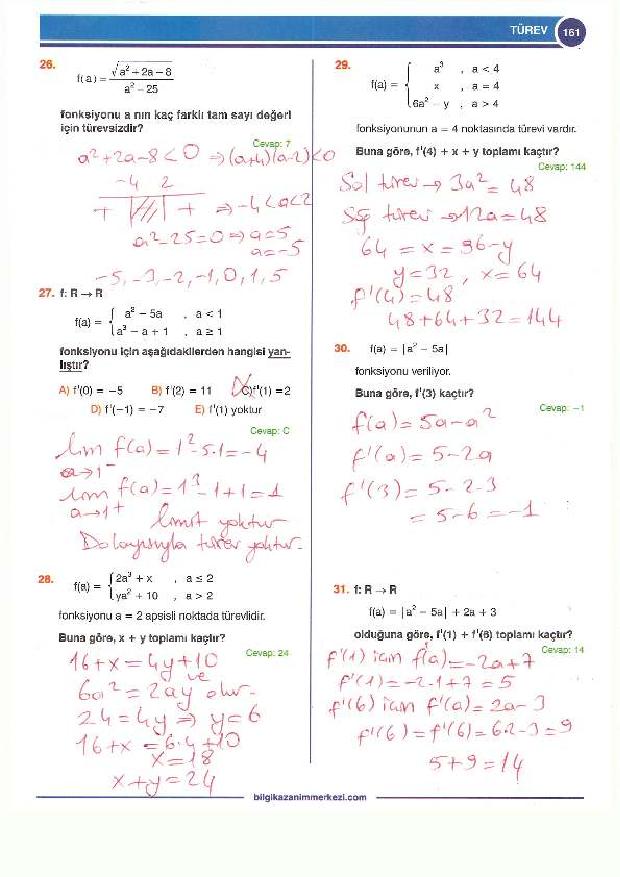 TÜREV 161
26.
f(a) = √a² + 2a – 8
a² – 25
fonksiyonu a nın kaç farklı tam sayı değeri
için türevsizdir?
Cevap: 7
a²+2a-8<0 ⇒ (a+4)(a-2)<0
-4 2
+ + ⇒ -4<a<2
a²-25=0 ⇒ a=5
a=-5
-5, -3, -2, -1, 0, 1, 5
27. f: R → R
f(a) = { a² – 5a , a < 1
a³ – a + 1 , a ≥ 1
fonksiyonu için aşağıdakilerden hangisi yan-
lıştır?
A) f'(0) = –5 B) f'(2) = 11 C) f'(1) = 2
D) f'(–1) = –7 E) f'(1) yoktur
Cevap: C
lim f(a) = 1²-5.1 = -4
a→1⁻
lim f(a) = 1³-1+1 = 1
a→1⁺ limit yoktur
Dolayısıyla türev yoktur.
28.
f(a) = { 2a³ + x , a ≤ 2
ya² + 10 , a > 2
fonksiyonu a = 2 apsisli noktada türevlidir.
Buna göre, x + y toplamı kaçtır?
Cevap: 24
16+x = 4y+10
ve
6a² = 2ay olur.
24 = 4y ⇒ y = 6
16+x = 6.4+10
x = 18
x+y = 24
29.
f(a) = { a³ , a < 4
x , a = 4
6a² – y , a > 4
fonksiyonunun a = 4 noktasında türevi vardır.
Buna göre, f'(4) + x + y toplamı kaçtır?
Cevap: 144
Sol türev → 3a² = 48
Sağ türev → 12a = 48
64 = x = 96-y
y = 32, x = 64
f'(4) = 48
48+64+32 = 144
30. f(a) = |a² – 5a|
fonksiyonu veriliyor.
Buna göre, f'(3) kaçtır?
Cevap: –1
f(a) = 5a-a²
f'(a) = 5-2a
f'(3) = 5-2-3
= 5-6 = -1
31. f: R → R
f(a) = |a² – 5a| + 2a + 3
olduğuna göre, f'(1) + f'(6) toplamı kaçtır?
Cevap: 14
f'(1) için f'(a) = -2a+7
f'(1) = -2-1+7 = 5
f'(6) için f'(a) = 2a-3
f'(6) = f'(6) = 6.2-3 = 9
5+9 = 14
bilgikazanimmerkezi.com